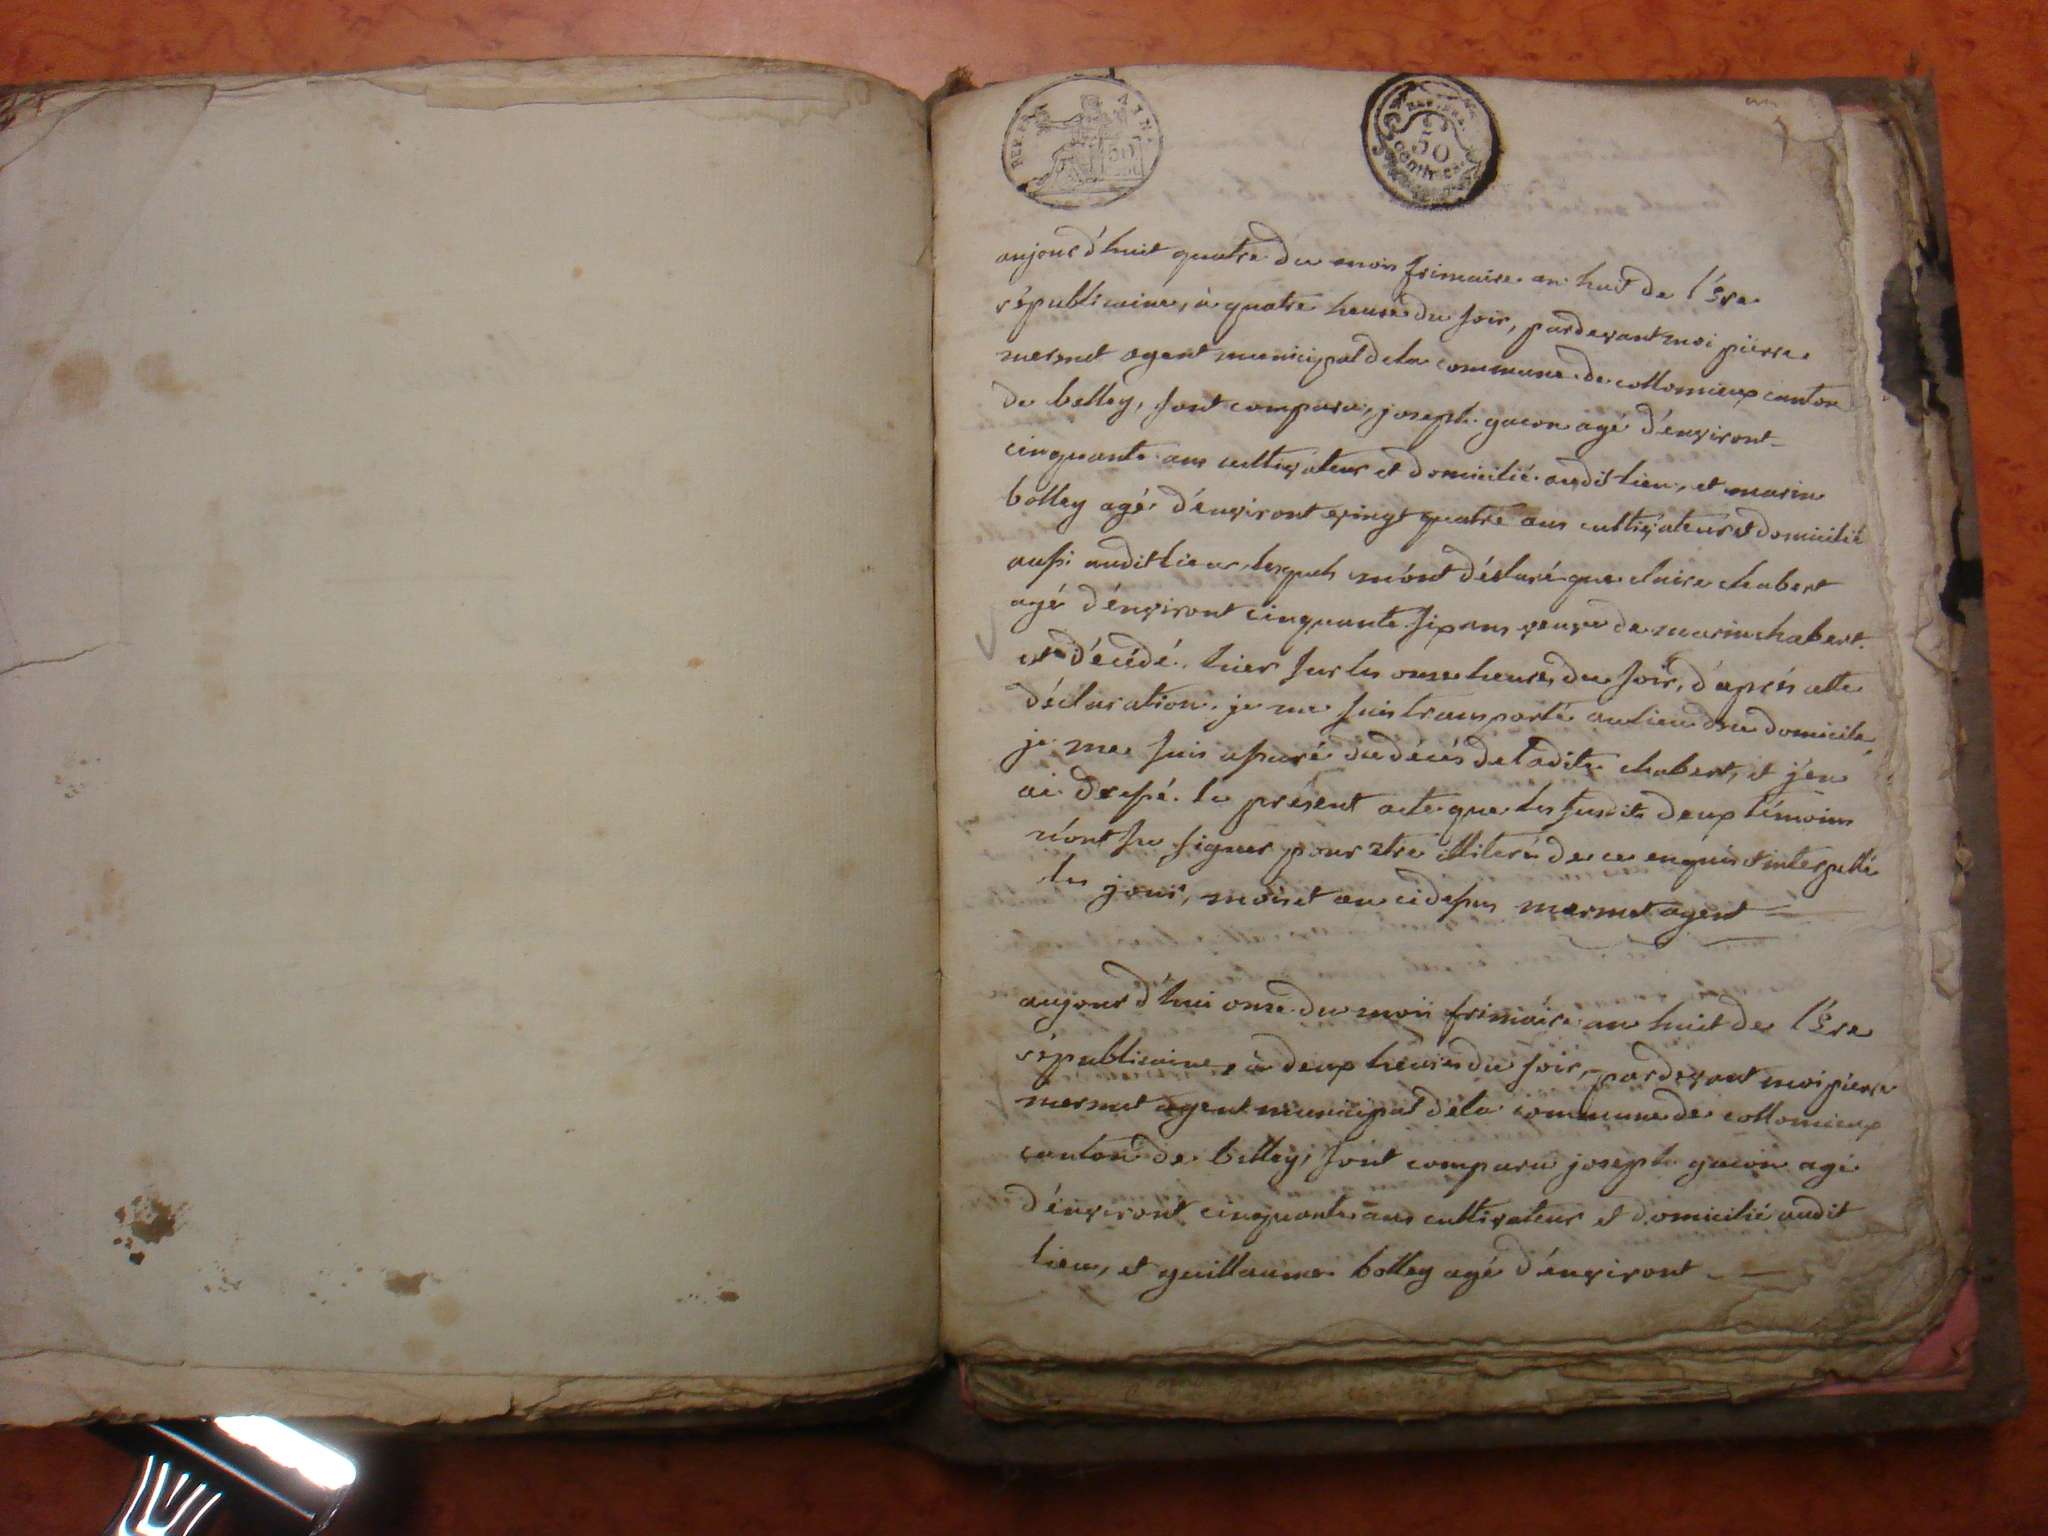 REP. FRA
50
50
centimes
an
7
aujourd'huit quatre du mois frimaire an huit de l'Ere
républicaine, à quatre heure du soir, pardevant moi pierre
mermet agent municipal dela commune de collomieux canton
de belley, sont comparu, joseph gacon agé d'environt
cinquante ans cultivateur et domicilié audit lieu, et marin
bolley agé d'environt vingt quatre ans cultivateur et domicilié
aussi audit lieu lesquels m'ont déclaré que claire chabert
agé d'environt cinquante six ans veuve de marin chabert
et décédé hier sur les onze heures du soir, d'après cette
déclaration je me suis transporté au lieu du domicile,
je me suis assuré du décès de ladite chabert, et j'en
ai dressé le présent acte que les susdits deux témoins
n'ont su signer pour etre illiteré de ce enquis et interpellé
les jour, mois et an ci dessus mermet agent
aujourd'hui onze du mois frimaire an huit de l'Ere
républicaine, à deux heures du soir, pardevant moi pierre
mermet agent municipal dela commune de collomieux
canton de belley, sont comparu joseph gacon agé
d'environt cinquante ans cultivateur et domicilié audit
lieu, et guillaume bolley agé d'environt